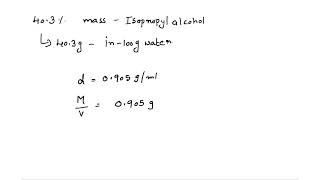 40.3% mass - Isopropyl alcohol
↳ 40.3g - in 100g water
d = 0.905 g/ml
M/V = 0.905 g